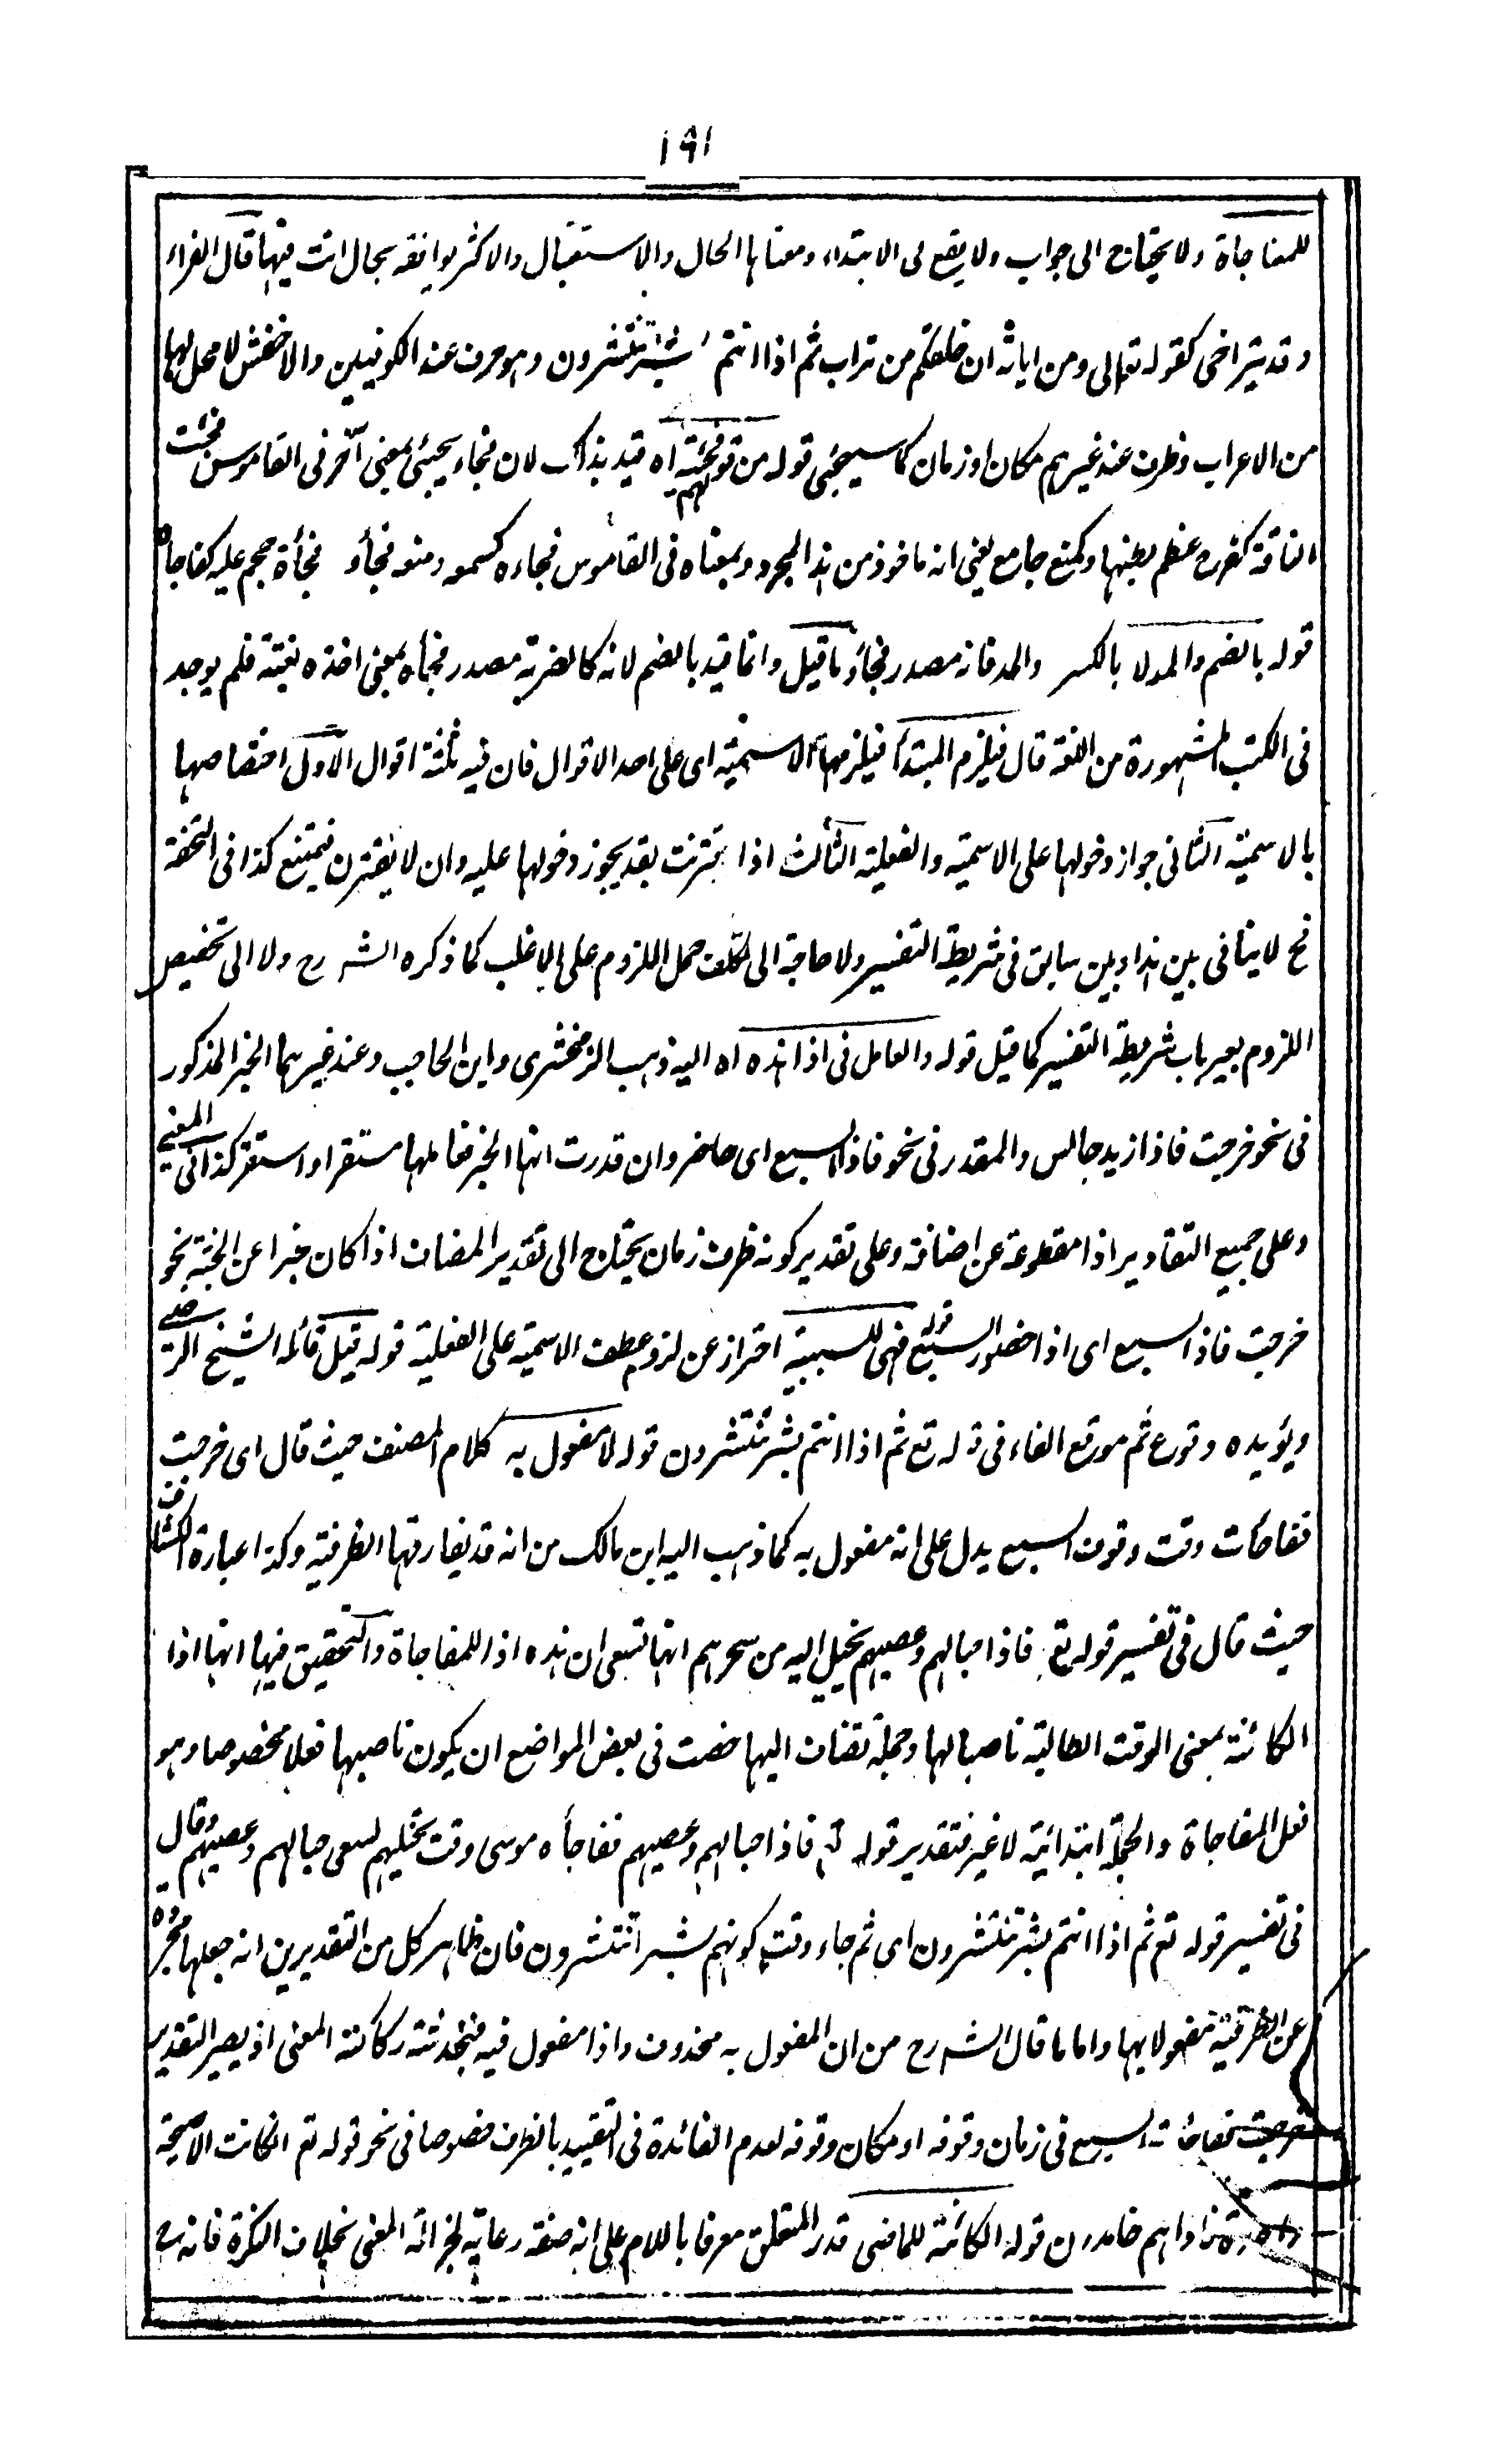 ١٩١
للمفاجاة ولا يحتاج الى جواب ولا يقع فى الابتداء ومعناها الحال والاستقبال والاكثر موافقه بحال انت فيها قال الفراء
وقد يتراخى كقوله تعالى ومن اياته ان خلقكم من تراب ثم اذا انتم بشر تنتشرون وهو حرف عند الكوفيين والاخفش لا محل لها
من الاعراب وظرف عند غيرهم مكان او زمان كما سيجئ قوله من قولهم فجئته اه قيد بذلك لان فجاء يجيئ بمعنى آخر فى القاموس فجئت
الناقة كفرح عظم بطنها وكمنع جامع يعنى انه ماخوذ من هذا المجرد وبمعناه فى القاموس فجاءه كسمعه ومنعه فجأ و فجأة هجم عليه كفاجأه
قوله بالضم والمد لا بالكسر والمد فانه مصدر فاجأ وما قيل وانما قيد بالضم لانه كالضربة مصدر فجأه بمعنى اخذه بغتة فلم يوجد
فى الكتب المشهورة من اللغة قال فيلزم المبتدأ فيلزمها الاسمية اى على احد الاقوال فان فيه ثلثة اقوال الاول اختصاصها
بالاسمية الثانى جواز دخولها على الاسمية والفعلية الثالث اذا اقترنت بقد يجوز دخولها عليه وان لا يقترن فيمتنع كذا فى التحفة
فح لا ينافى بين هذا وبين سابق فى شريطة التفسير ولا حاجة الى تكلف حمل اللزوم على الاغلب كما ذكره الشه رح ولا الى تخصيص
اللزوم بغير باب شريطة التفسير كما قيل قوله والعامل فى اذا هذه اه اليه ذهب الزمخشرى وابن الحاجب وعند غيرهما الخبر المذكور
فى نحو خرجت فاذا زيد جالس والمقدر فى نحو فاذا السبع اى حاضر وان قدرت انها الخبر فعاملها مستقر او استقر كذا فى المغنى
وعلى جميع التقادير اذا مقطوعة عن اضافة وعلى تقدير كونه ظرف زمان يحتاج الى تقدير المضاف اذا كان خبرا عن الجثة نحو
خرجت فاذا السبع اى اذا حضور السبع قوله فهى للسببية احتراز عن لزوم عطف الاسمية على الفعلية قوله قيل قائله الشيخ الرضى
ويؤيده وقوع ثم موقع الفاء فى قوله تع ثم اذا انتم بشر تنتشرون قوله لا مفعول به كلام المصنف حيث قال اى خرجت
ففاجأت وقت وقوف السبع يدل على انه مفعول به كما ذهب اليه ابن مالك من انه قد يفارقها الظرفية وكذا عبارة الكشاف
حيث قال فى تفسير قوله تع فاذا حبالهم وعصيهم يخيل اليه من سحرهم انها تسعى ان هذه اذا للمفاجاة والتحقيق فيها انها اذا
الكائنة بمعنى الوقت الطالبة ناصبا لها وجملة تضاف اليها خصت فى بعض المواضع ان يكون ناصبها فعلا مخصوصا وهو
فعل المفاجاة والجملة ابتدائية لا غير فتقدير قوله تع فاذا حبالهم وعصيهم ففاجأه موسى وقت تخييلهم لسعى حبالهم وعصيهم وقال
فى تفسير قوله تع ثم اذا انتم بشر تنتشرون اى ثم جاء وقت كونهم بشرا تنتشرون فان ظاهر كل من التقديرين انه جعلها مجردة
عن الظرفية مفعولا بها واما ما قال الشه رح من ان المفعول به محذوف واذا مفعول فيه فيخدشه ركاكة المعنى اذ يصير التقدير
خرجت ففاجأت السبع فى زمان وقوفه او مكان وقوفه لعدم الفائدة فى التقييد بالظرف خصوصا فى نحو قوله تع ان كانت الا صيحة
واحدة فاذا هم خامدون قوله الكائنة للماضى قدر المتعلق معرفا باللام على انه صفة رعاية لجزالة المعنى بخلاف النكرة فانه